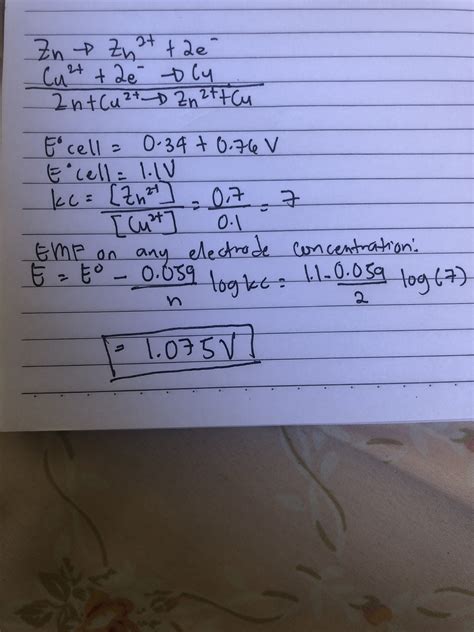 Zn → Zn²⁺ + 2e⁻
Cu²⁺ + 2e⁻ → Cu
Zn + Cu²⁺ → Zn²⁺ + Cu
E° cell = 0.34 + 0.76 V
E° cell = 1.1 V
kc = [Zn²⁺] / [Cu²⁺] = 0.7 / 0.1 = 7
EMF on any electrode concentration:
E = E° - 0.059 / n log kc = 1.1 - 0.059 / 2 log (7)
= 1.075 V